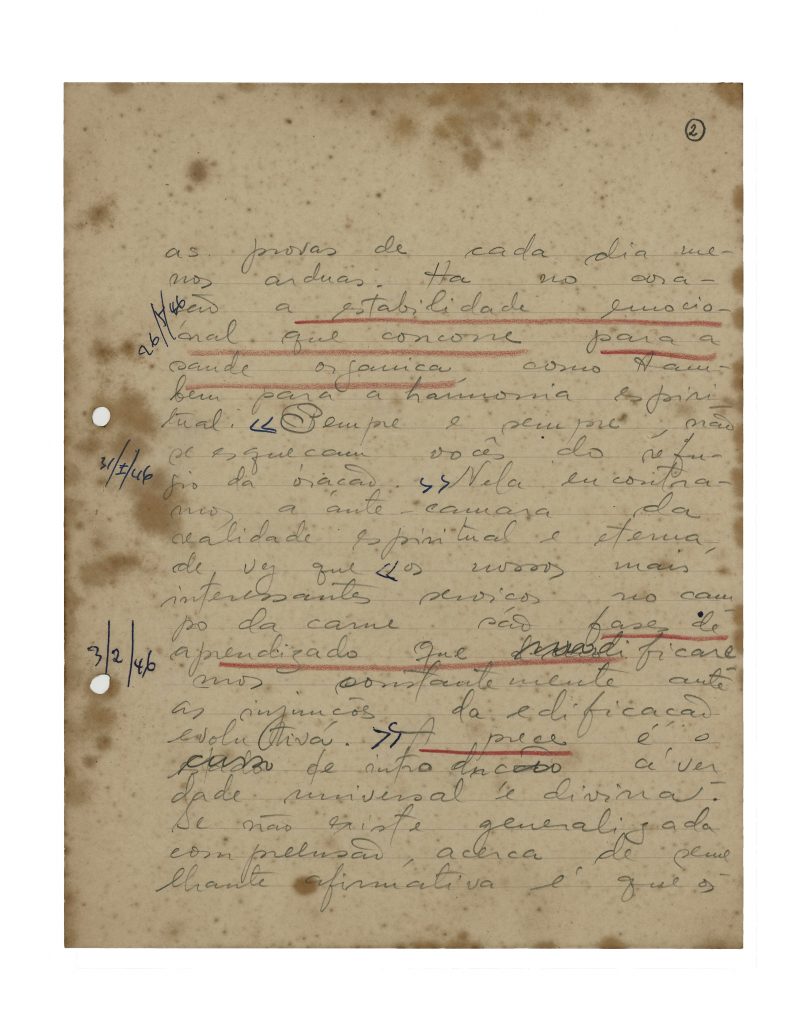 2
as provas de cada dia me-
nos arduas. Ha no ora-
ção a estabilidade emocio-
26/1/46
nal que concorre para a
saude organica como tam-
bem para a harmonia espiri
tual. « Sempre e sempre, não
se esqueçam vocês do refu-
31/I/46
gio da oração. » Nela encontra-
mos a ante-camara da
realidade espiritual e eterna,
de vez que « os nossos mais
interessantes serviços no cam
po da carne são fases de
3/2/46
aprendizado que modificare
mos constantemente ante
as injunções da edificação
evolutiva. » A prece é o
curso de introdução á ver
dade universal e divina.
Se não existe generalizada
compreensão, acerca de seme
lhante afirmativa é que os